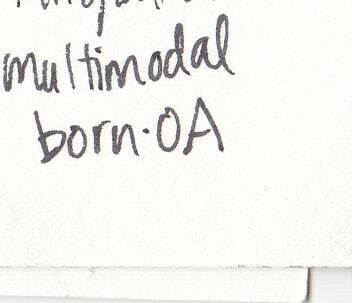 multimodal
born·OA